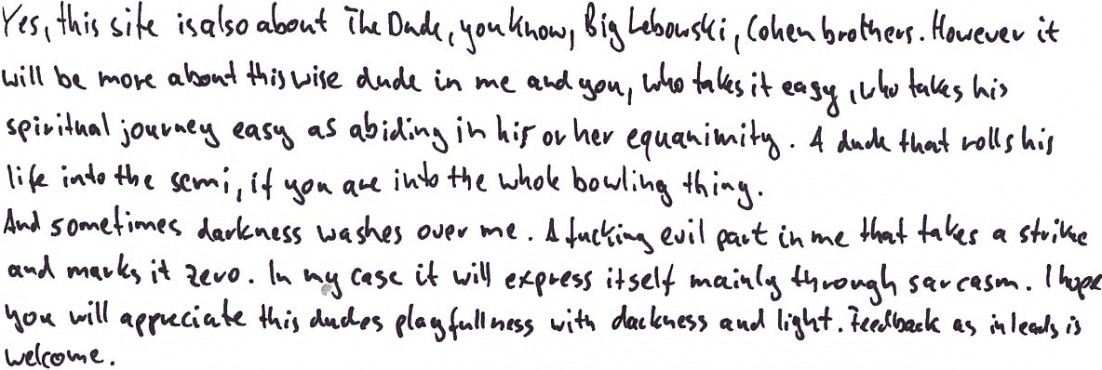 Yes, this site is also about The Dude, you know, Big Lebowski, Cohen brothers. However it
will be more about this wise dude in me and you, who takes it easy, who takes his
spiritual journey easy as abiding in his or her equanimity. A dude that rolls his
life into the semi, if you are into the whole bowling thing.
And sometimes darkness washes over me. A fucking evil part in me that takes a strike
and marks it zero. In my case it will express itself mainly through sarcasm. I hope
you will appreciate this dudes playfullness with darkness and light. Feedback as in leads is
welcome.